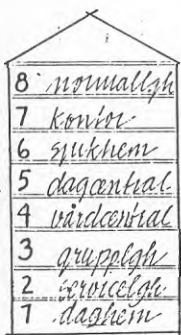 8 normallgh
7 kontor
6 sjukhem
5 dagcentral
4 vårdcentral
3 grupplgh
2 servicelgh
1 daghem